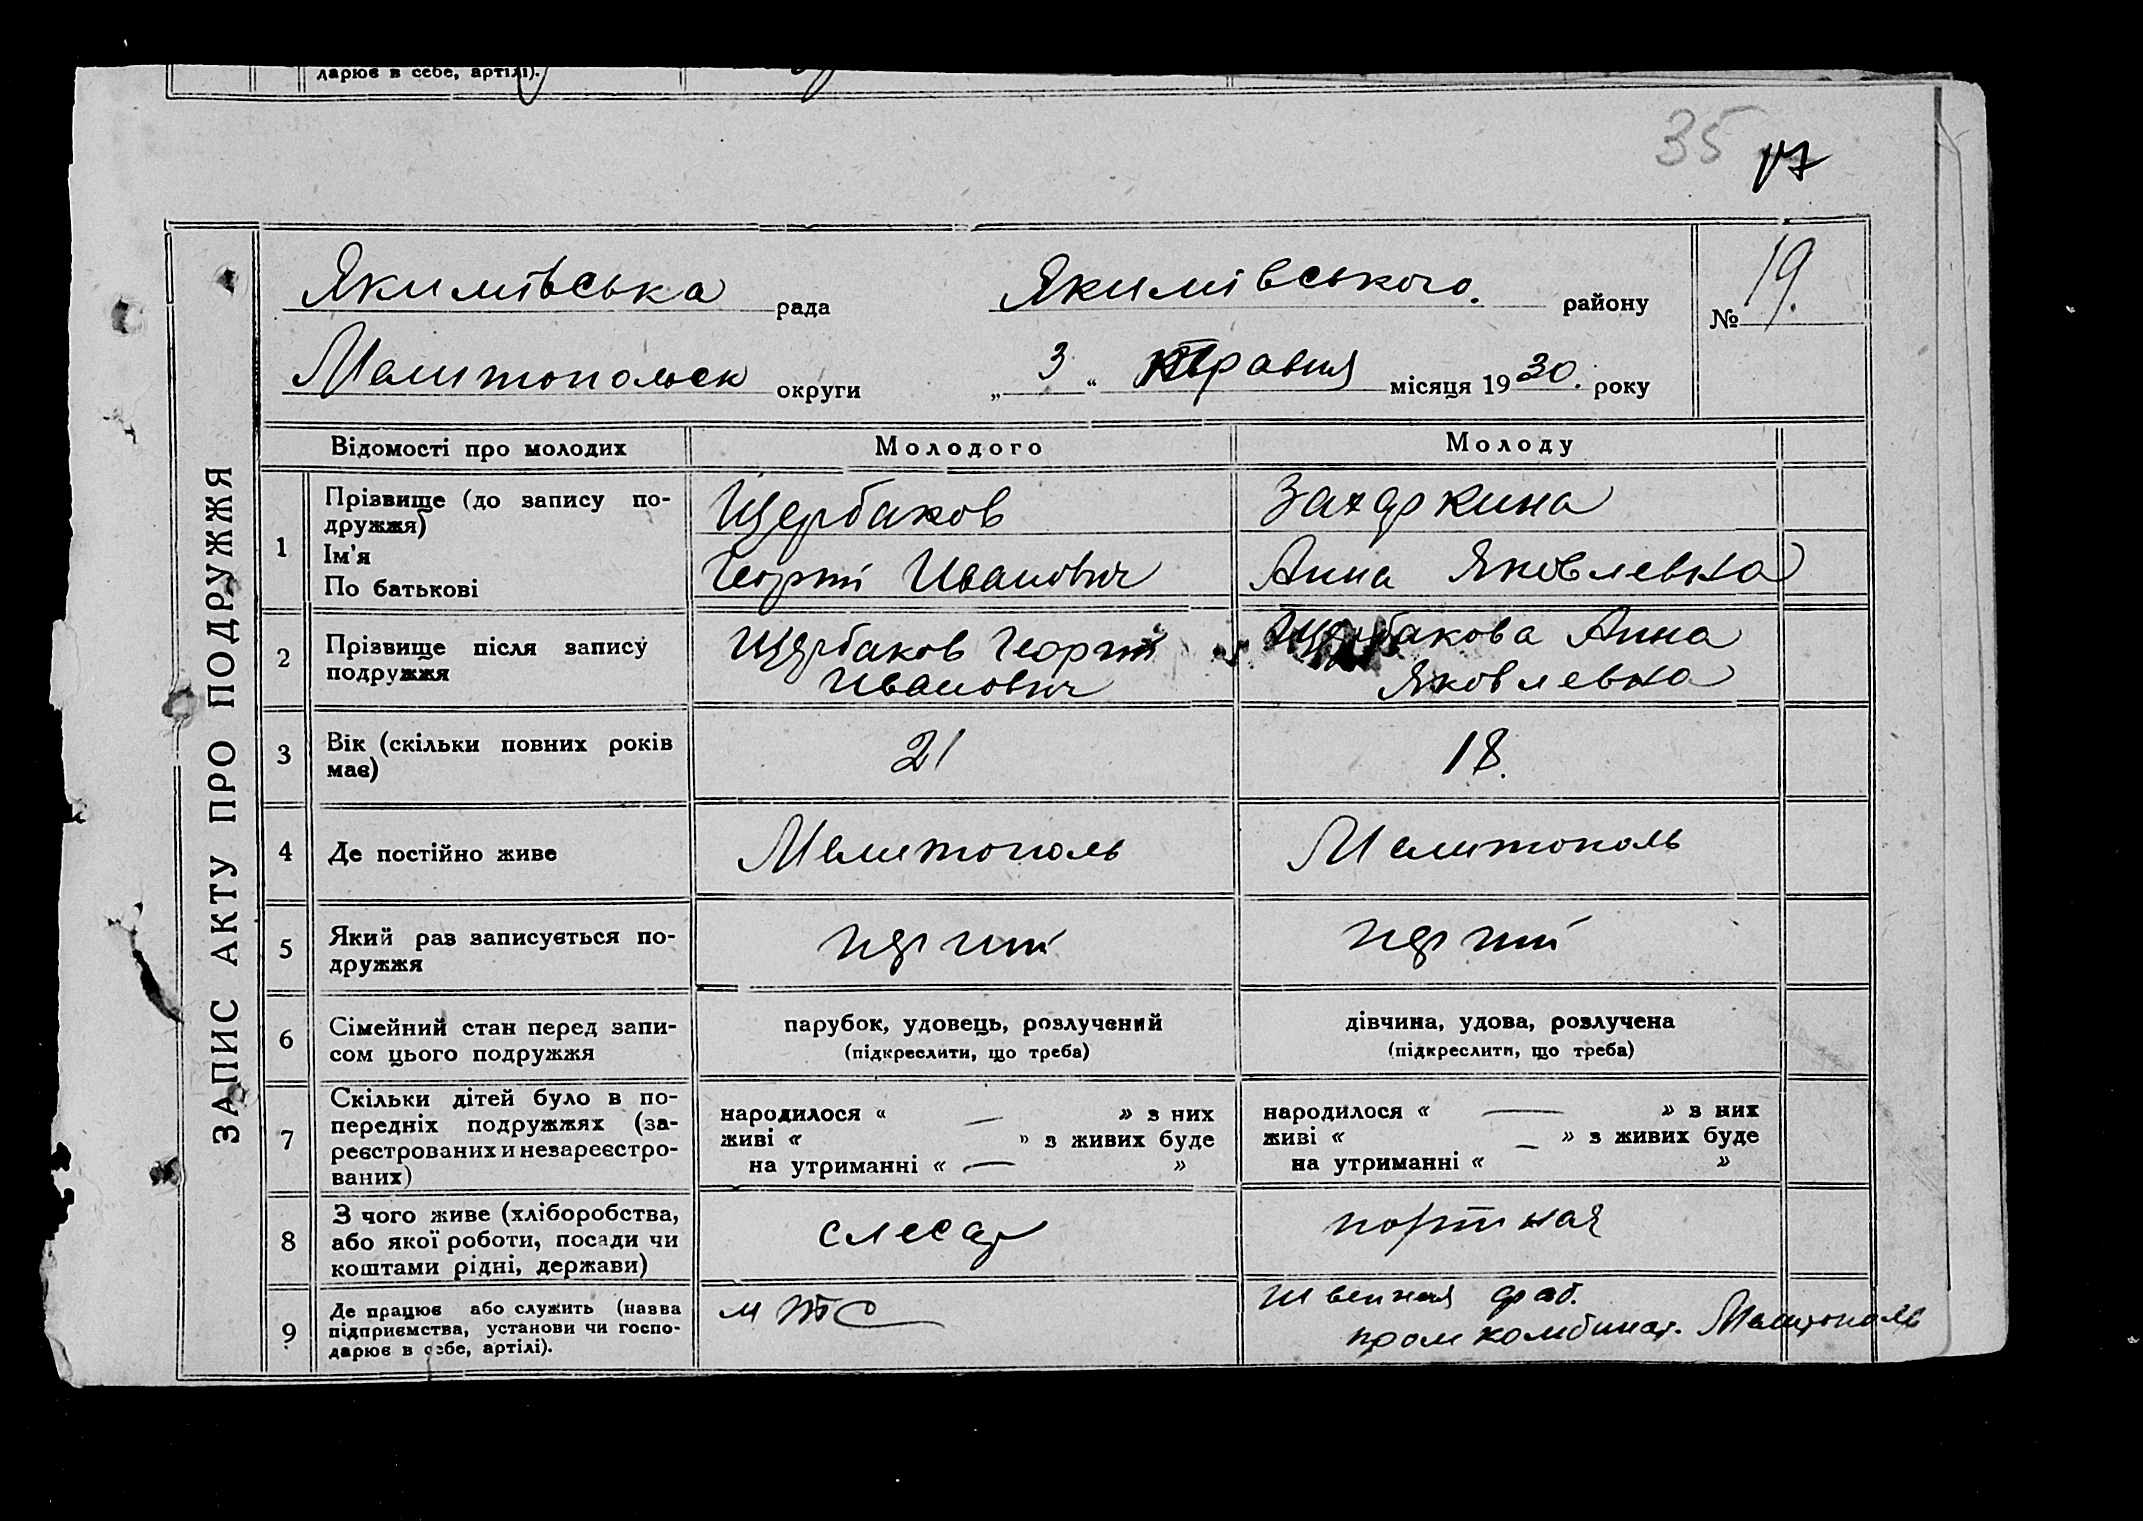 дарює в себе, артілі).
35 17
Якимівська рада Якимівського. району № 19.
Мелитопольск округи „ 3 “ травня місяця 1930. року
ЗАПИС АКТУ ПРО ПОДРУЖЖЯ
Відомості про молодих Молодого Молоду
1 Прізвище (до запису по-
дружжя)
Ім'я
По батькові
Щербаков
Георгій Иванович
Захаркина
Анна Яковлевна
2 Прізвище після запису
подружжя
Щербаков Георгій
Иванович
Щербакова Анна
Яковлевна
3 Вік (скільки повних років
має)
21
18.
4 Де постійно живе Мелитополь Мелитополь
5 Який раз записується по-
дружжя
перший
перший
6 Сімейний стан перед запи-
сом цього подружжя
парубок, удовець, розлучений
(підкреслити, що треба)
дівчина, удова, розлучена
(підкреслити, що треба)
7 Скільки дітей було в по-
передніх подружжях (за-
реєстрованих и незареєстро-
ваних)
народилося « — » з них
живі « » з живих буде
на утриманні « — »
народилося « — » з них
живі « — » з живих буде
на утриманні « »
8 З чого живе (хліборобства,
або якої роботи, посади чи
коштами рідні, держави)
слесар
портная
9 Де працює або служить (назва
підприємства, установи чи госпо-
дарює в себе, артілі).
МТС
Швейная фаб.
промкомбинат. Мелитополь